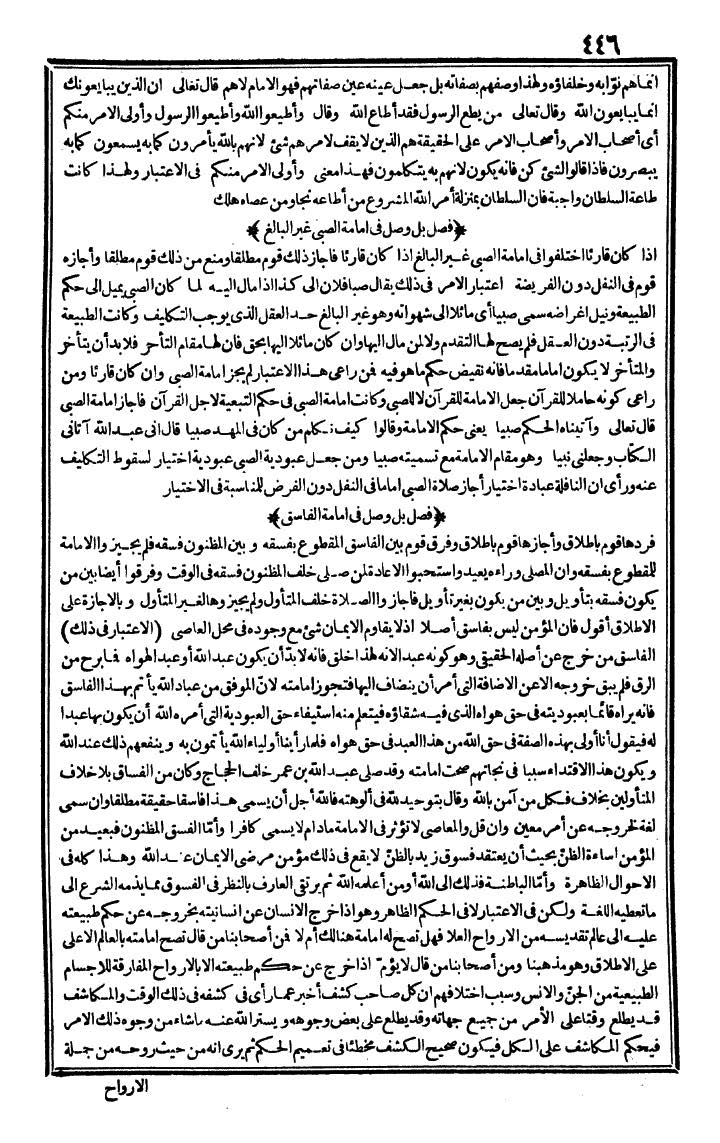 ٤٤٦
انما هم نوّابه وخلفاؤه ولهذا وصفهم بصفاته بل جعل عينه عين صفاتهم فهو الامام لا هم قال تعالى ان الذين يبايعونك
انما يبايعون الله وقال تعالى من يطع الرسول فقد أطاع الله وقال وأطيعوا الله وأطيعوا الرسول وأولى الامر منكم
أى أصحاب الامر وأصحاب الامر على الحقيقة هم الذين لا يقف لامرهم شئ لانهم بالله يأمرون كما به يسمعون كما به
يبصرون فاذا قالوا لشئ كن فانه يكون لانهم به يتكلمون فهذا معنى وأولى الامر منكم فى الاعتبار ولهذا كانت
طاعة السلطان واجبة فان السلطان بمنزلة أمر الله المشروع من أطاعه نجا ومن عصاه هلك
﴿فصل بل وصل فى امامة الصبى غير البالغ﴾
اذا كان قارئا اختلفوا فى امامة الصبى غير البالغ اذا كان قارئا فاجاز ذلك قوم مطلقا ومنع من ذلك قوم مطلقا وأجازه
قوم فى النفل دون الفريضة اعتبار الامر فى ذلك يقال صبا فلان الى كذا اذا مال اليه لما كان الصبى يميل الى حكم
الطبيعة ونيل اغراضه سمى صبيا أى مائلا الى شهواته وهو غير البالغ حد العقل الذى يوجب التكليف وكانت الطبيعة
فى الرتبة دون العقل فلم يصح لها التقدم ولا لمن مال اليها وان كان مائلا اليها بحق فان لها مقام التأخر فلابد أن يتأخر
والمتأخر لا يكون اماما مقدما فانه نقيض حكم ما هو فيه فمن راعى هذا الاعتبار لم يجز امامة الصبى وان كان قارئا ومن
راعى كونه حاملا للقرآن جعل الامامة للقرآن لا للصبى وكانت امامة الصبى فى حكم التبعية لاجل القرآن فاجاز امامة الصبى
قال تعالى وآتيناه الحكم صبيا يعنى حكم الامامة وقالوا كيف نكلم من كان فى المهد صبيا قال انى عبد الله آتانى
الكتاب وجعلنى نبيا وهو مقام الامامة مع تسميته صبيا ومن جعل عبودية الصبى عبودية اختيار لسقوط التكليف
عنه ورأى ان النافلة عبادة اختيار أجاز صلاة الصبى اماما فى النفل دون الفرض للمناسبة فى الاختيار
﴿فصل بل وصل فى امامة الفاسق﴾
فردها قوم باطلاق وأجازها قوم باطلاق وفرق قوم بين الفاسق المقطوع بفسقه وبين المظنون فسقه فلم يجيزوا الامامة
للمقطوع بفسقه وان المصلى وراءه يعيد واستحبوا الاعادة لمن صلى خلف المظنون فسقه فى الوقت وفرقوا أيضا بين من
يكون فسقه بتأويل وبين من يكون بغير تأويل فاجازوا الصلاة خلف المتأول ولم يجيزوها لغير المتأول وبالاجازة على
الاطلاق أقول فان المؤمن ليس بفاسق أصلا اذ لا يقاوم الايمان شئ مع وجوده فى محل العاصى (الاعتبار فى ذلك)
الفاسق من خرج عن أصله الحقيقى وهو كونه عبدا لانه لهذا خلق فانه لابدّ أن يكون عبد الله أو عبد الهواه فما برح من
الرق فلم يبق خروجه الا عن الاضافة التى أمر أن ينضاف اليها فتجوز امامته لانّ الموفق من عباد الله يأتم بهذا الفاسق
فانه يراه قائما بعبوديته فى حق هواه الذى فيه شقاؤه فيتعلم منه استيفاء حق العبودية التى أمره الله أن يكون بها عبدا
له فيقول أنا أولى بهذه الصفة فى حق الله من هذا العبد فى حق هواه فلما رأينا أولياء الله يأتمون به وينفعهم ذلك عند الله
ويكون هذا الاقتداء سببا فى نجاتهم صحت امامته وقد صلى عبد الله بن عمر خلف الحجاج وكان من الفساق بلا خلاف
المتأولين بخلاف فكل من آمن بالله وقال بتوحيد الله فى ألوهته فالله أجل أن يسمى هذا فاسقا حقيقة مطلقا وان سمى
لغة لخروجه عن أمر معين وان قل والمعاصى لا تؤثر فى الامامة مادام لا يسمى كافرا وأمّا الفسق المظنون فبعيد من
المؤمن اساءة الظنّ بحيث أن يعتقد فسوق زيد بالظنّ لا يقع فى ذلك مؤمن مرضى الايمان عند الله وهذا كله فى
الاحوال الظاهرة وأمّا الباطنة فذلك الى الله أو من أعلمه الله ثم يرتقى العارف بالنظر فى الفسوق مما يذمه الشرع الى
ما تعطيه اللغة ولكن فى الاعتبار لا فى الحكم الظاهر وهو اذا خرج الانسان عن انسانيته بخروجه عن حكم طبيعته
عليه الى عالم تقديسه من الارواح العلا فهل تصح له امامة هنالك أم لا فمن أصحابنا من قال تصح امامته بالعالم الاعلى
على الاطلاق وهو مذهبنا ومن أصحابنا من قال لا يؤمّ اذا خرج عن حكم طبيعته الا بالارواح المفارقة للاجسام
الطبيعية من الجنّ والانس وسبب اختلافهم ان كل صاحب كشف أخبر عما رأى فى كشفه فى ذلك الوقت والمكاشف
قد يطلع وقتا على الأمر من جميع جهاته وقد يطلع على بعض وجوهه ويستر الله عنه ماشاء من وجوه ذلك الامر
فيحكم المكاشف على الكل فيكون صحيح الكشف مخطئا فى تعميم الحكم ثم يرى انه من حيث روحه من جملة
الارواح